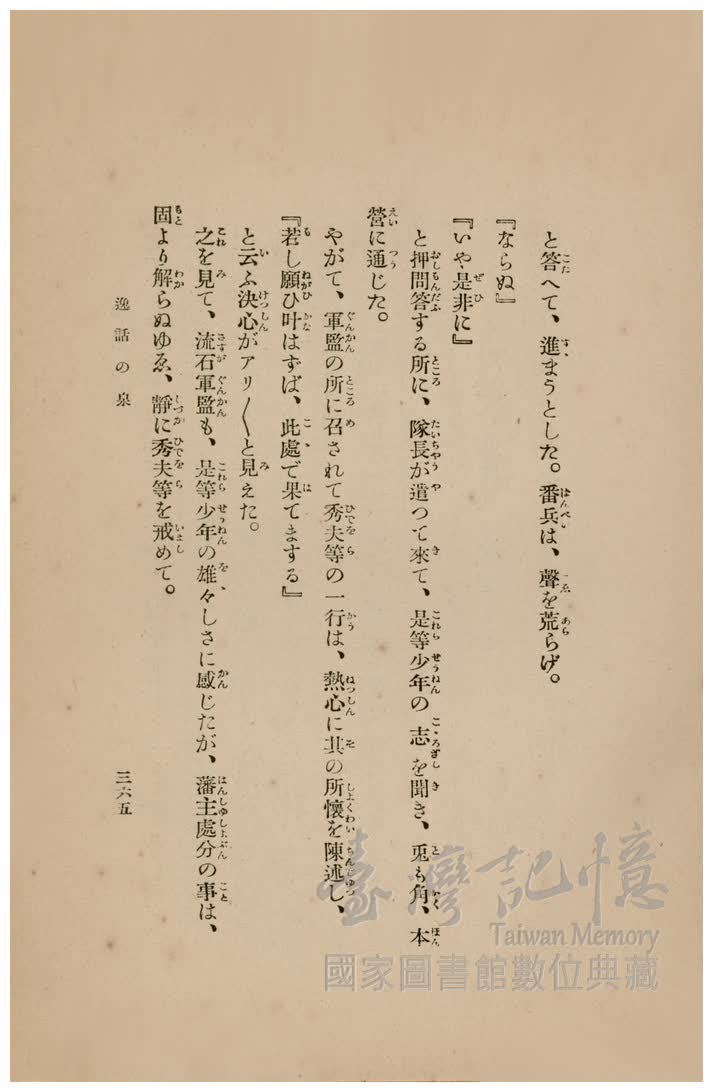 と答へて、進まうとした。番兵は、聲を荒らげ。
『ならぬ』
『いや是非に』
と押問答する所に、隊長が遣つて來て、是等少年の志を聞き、兎も角、本
營に通じた。
やがて、軍監の所に召されて秀夫等の一行は、熱心に其の所懷を陳述し、
『若し願ひ叶はずば、此處で果てまする』
と云ふ決心がアリ〱と見えた。
之を見て、流石軍監も、是等少年の雄々しさに感じたが、藩主處分の事は、
固より解らぬゆゑ、靜に秀夫等を戒めて。
逸話の泉
三六五
臺灣記憶
Taiwan Memory
國家圖書館數位典藏